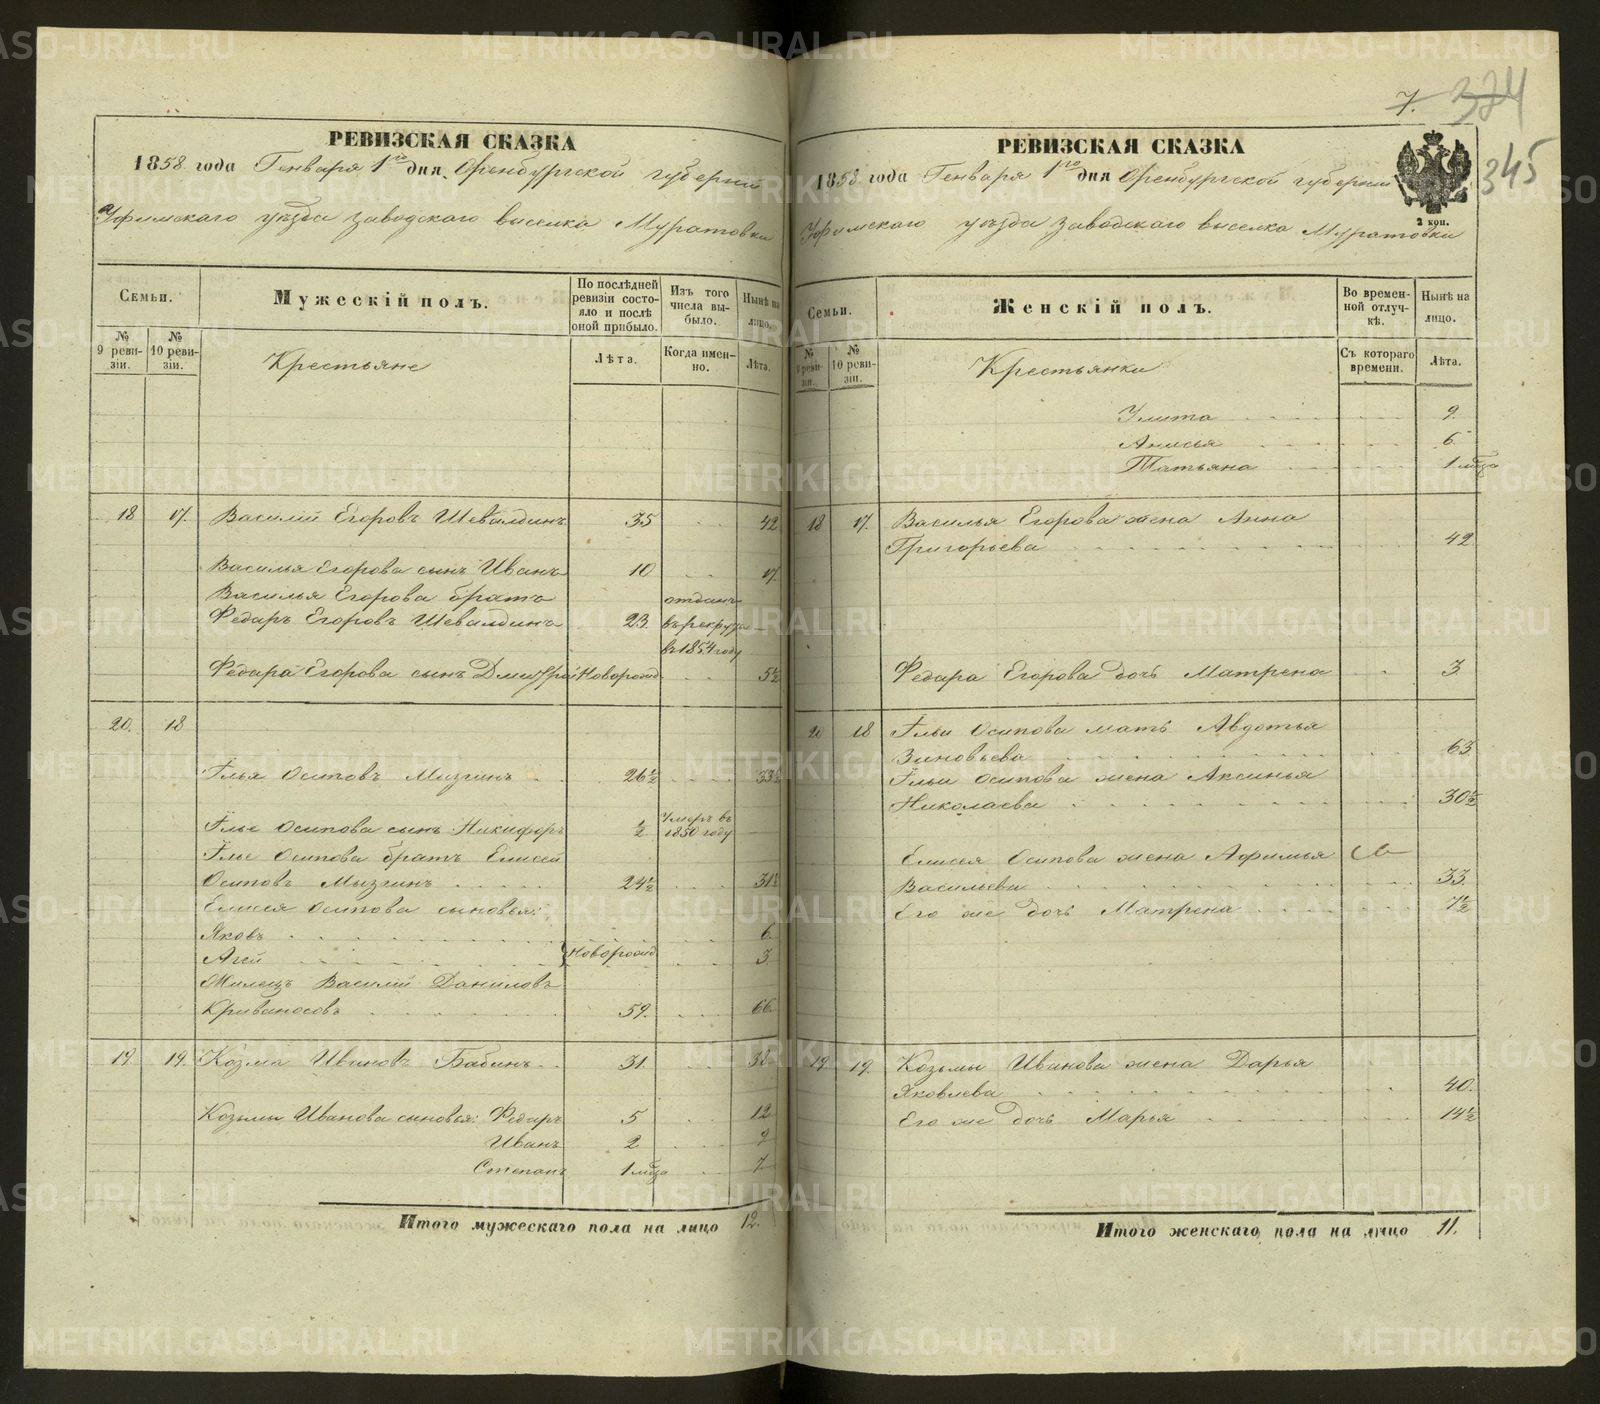 7. 324
345
РЕВИЗСКАЯ СКАЗКА
1858 года Генваря 1го дня Оренбургской губернии
Уфимскаго уѣзда заводскаго выселка Муратовки
Семьи.
Мужескій полъ.
По послѣдней ревизіи состояло и послѣ оной прибыло.
Изъ того числа выбыло.
Нынѣ на лицо.
№ 9 ревизіи.
№ 10 ревизіи.
Крестьяне
Лѣта.
Когда именно.
Лѣта.
18 17. Василій Егоровъ Шевалдинъ 35 42
Василья Егорова сынъ Иванъ 10 17.
Василья Егорова братъ отданъ
Федаръ Егоровъ Шевалдинъ 23. въ рекруты
въ 1854 году
Федара Егорова сынъ Дмитрій Новорожд 5½
20. 18
Илья Осиповъ Мызгинъ 26½ 33½
Ильи Осипова сынъ Никифоръ ½ Умеръ въ 1850 году
Ильи Осипова братъ Елисей
Осиповъ Мызгинъ 24½ 31½
Елисея Осипова сыновья:
Яковъ 6
Агей Новорожд 3
Василій Даниловъ
Кривоносовъ 59. 66
19. 19. Козма Ивановъ Бабинъ 31. 38
Козьмы Иванова сыновья: Федаръ 5 12
Иванъ 2 9
Степанъ 1 мѣца 7
Итого мужескаго пола на лицо 12.
РЕВИЗСКАЯ СКАЗКА
1858 года Генваря 1го дня Оренбургской губерніи
Уфимскаго уѣзда заводскаго выселка Муратовки
2 коп.
Семьи.
Женскій полъ.
Во временной отлучкѣ.
Нынѣ на лицо.
№ 9 ревизіи.
№ 10 ревизіи.
Крестьянки
Съ котораго времени.
Лѣта.
Улита 9.
Анисья 6
Татьяна 1 мѣца
18 17. Василья Егорова жена Анна
Григорьева 42
Федара Егорова дочь Матрена 3
20 18 Ильи Осипова мать Авдотья
Зиновьева 63
Ильи Осипова жена Аксинья
Николаева 30½
Елисея Осипова жена Афимья
Васильева 33
Его же дочь Матрена 7½
19 19. Козьмы Иванова жена Дарья
Яковлева 40.
Его же дочь Марья 14½
Итого женскаго пола на лицо 11.
METRIKI.GASO-URAL.RU